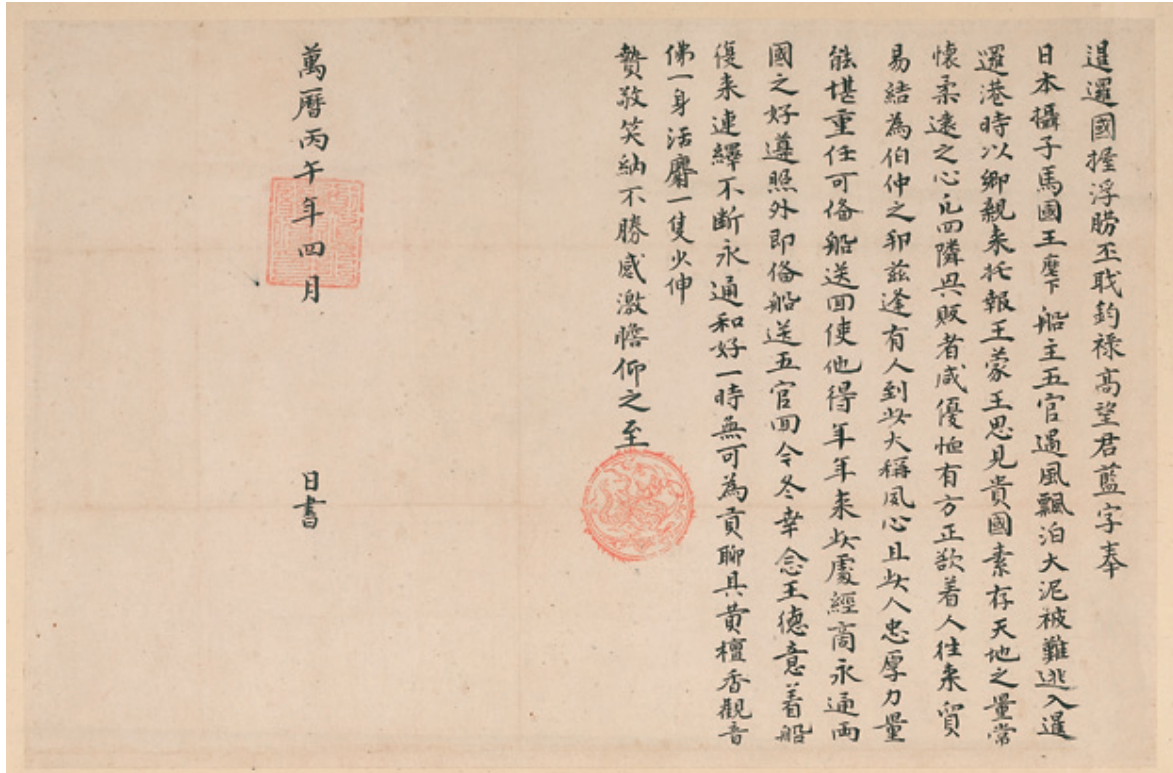 暹邏國握浮勝丕戝鈞祿髙望君藍字奉
日本攝子馬國王麾下船主五官遇風飄泊大泥被難迯入暹
邏港時以卿親来托報王蒙王思見貴國素存天地之量常
懷柔逺之心凢四隣興販者咸優恤有方正欲着人往来貿
易結為伯仲之邦兹逢有人到此大稱夙心且此人忠厚力量
能堪重任可俻船送囬使他得年年来此處經商永通兩
國之好遵照外即俻船送五官囬令冬幸念王德意着船
復来連繹不断永通和好一時無可為貢聊具黄檀香觀音
佛一身活麝一隻少伸
贄敬笑納不勝感激瞻仰之至
萬曆丙午年四月 日書